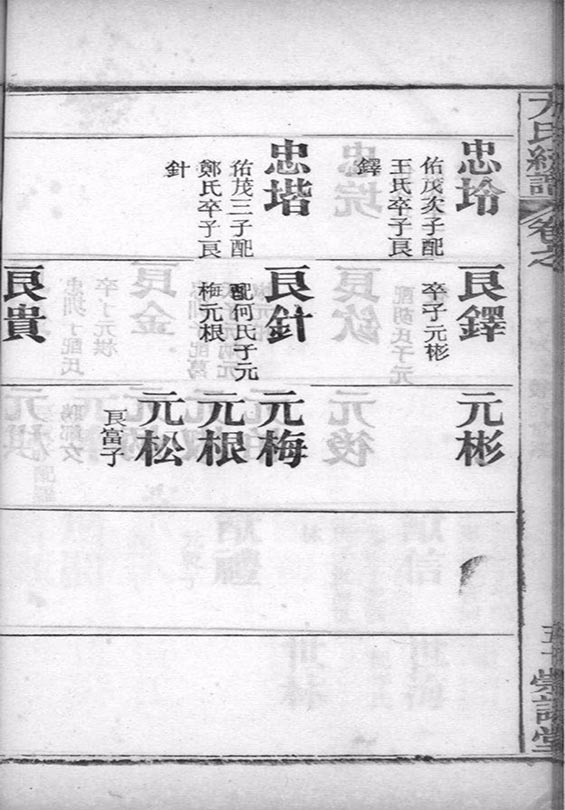 卷之
五十
忠坽
佑茂次子配
王氏卒子艮
鐸
忠堦
佑茂三子配
鄭氏卒子艮
針
艮鐸
卒子元彬
艮針
配何氏子元
梅元根
艮貴
元彬
元梅
元根
元松
艮富子